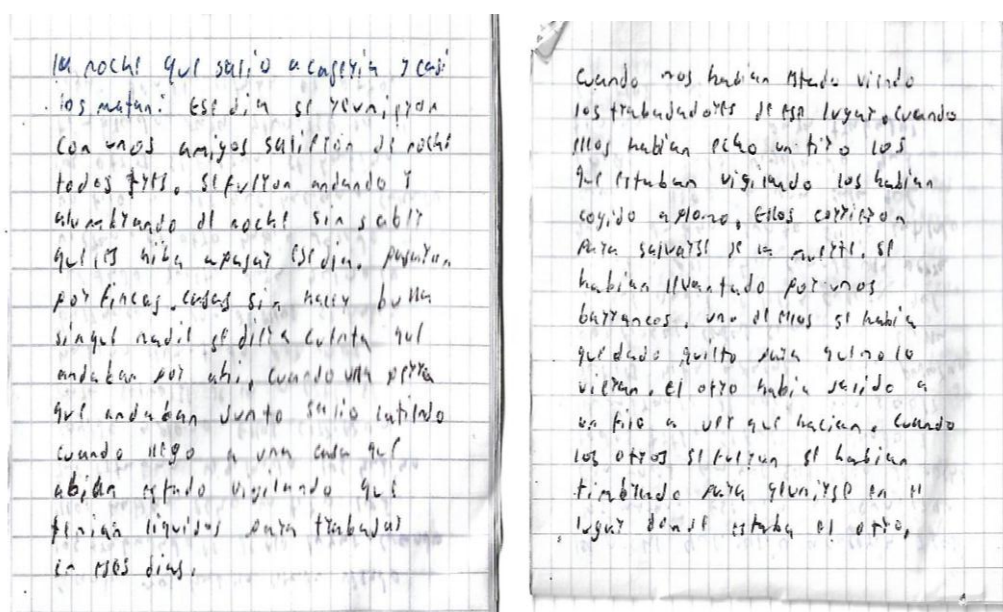 la noche que salio a caseria y casi
los matan: Ese dia se reunieron
con unos amigos salieron de noche
todos tres. se fueron andando y
alumbrando de noche sin saber
que les hiba apasar ese dia. pasaron
por fincas, casas sin hacer bulla
sinque nadie se diera cuenta que
andaban por ahi, cuando una perra
que andaban junto salio latiendo
cuando llego a una casa que
abian estado vigilando que
tenian liquidos para trabajar
en esos dias.
Cuando nos habian estado viendo
los trabajadores de ese lugar, cuando
ellos habian echo un tiro los
que estaban vigilando los habian
cogido aplomo, Ellos corrieron
para salvarse de la muerte, se
habian llevantado por unos
barrancos, uno de ellos se habia
quedado quieto para quenolo
vieran, el otro habia salido a
un filo a ver que hacian, cuando
los otros se fueron se habian
timbrado para reunirse en el
lugar donde estaba el otro,